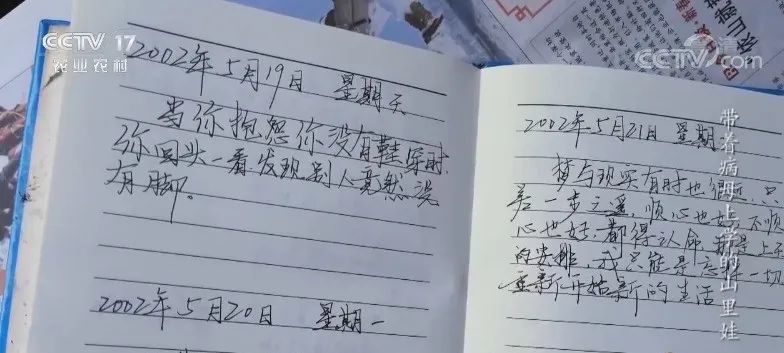 CCTV 17
农业农村
CCTV.com
2002年5月19日 星期天
当你抱怨你没有鞋穿时,
你回头一看发现别人竟然没
有脚。
2002年5月20日 星期一
2002年5月21日 星期
梦与现实有时也很近,只
差一步之遥,顺心也好,不顺
心也好,都得认命,是上天
的安排,我只能是一切
重新开始新的生活
带着病母上学的山里娃